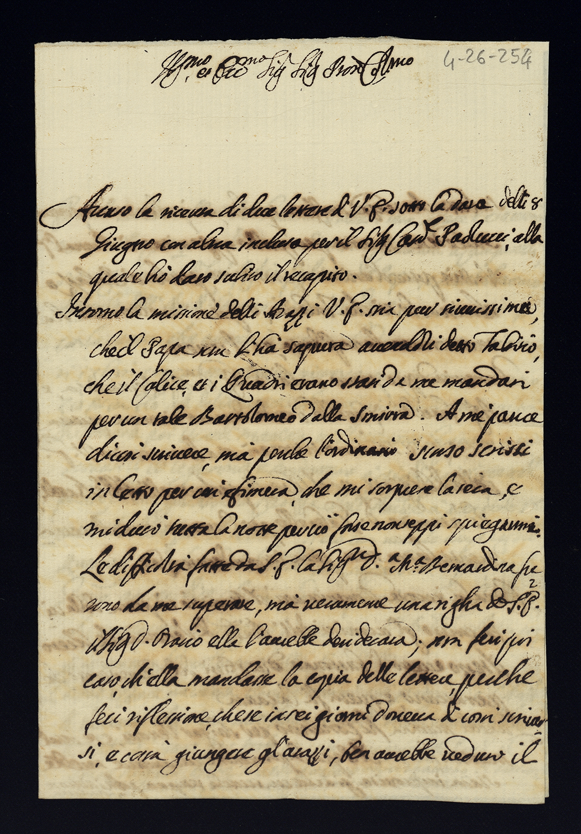 Ill.mo et Ecc.mo Sig.r Sig.r Pron Col.mo
4-26-254
Accuso la riceuta di due lettere di V. E. sotto la data delli 8
Giugno con altra inclusa per il Sig.r Card.l Paducci, alla
quale hò dato subito il recapito.
Intorno la missione delli Arazzi V. E. stia pur sicurissima
che il Papa non l'hà saputa avendoli detto
che il Calice, et i Quadri erano stati da me mandati
per un tale Bartolomeo dalla Smirra. A me parve
di così scrivere, ma perche l'ordinario scorso scrissi
in letto per un' efimera, che mi sorprese la sera, e
mi durò tutta la notte perciò forse non seppi spiegarmi.
Le difficoltà fatte da S. E. la Sig.ra D. Bernardina fu
rono da me superate, mà veramente una righa di S. E.
il Sig. D. ella l'averebbe desiderata, non feci poi
caso, ch'ella mandasse la copia della lettera, perche
feci riflessione, che se in sei giorni doveva di costì scriver
si, e costà giungere gl'arazzi, ben averebbe veduto il